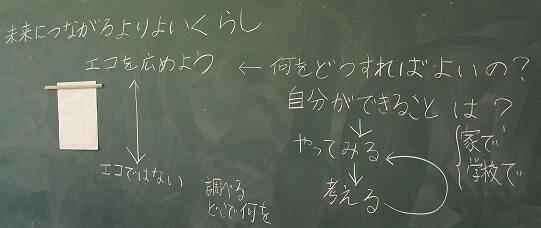 未来につながるよりよいくらし
エコを広めよう ← 何をどうすればよいの?
自分ができることは?
やってみる
家で
学校で
エコではない
考える
調べる
どこで何を